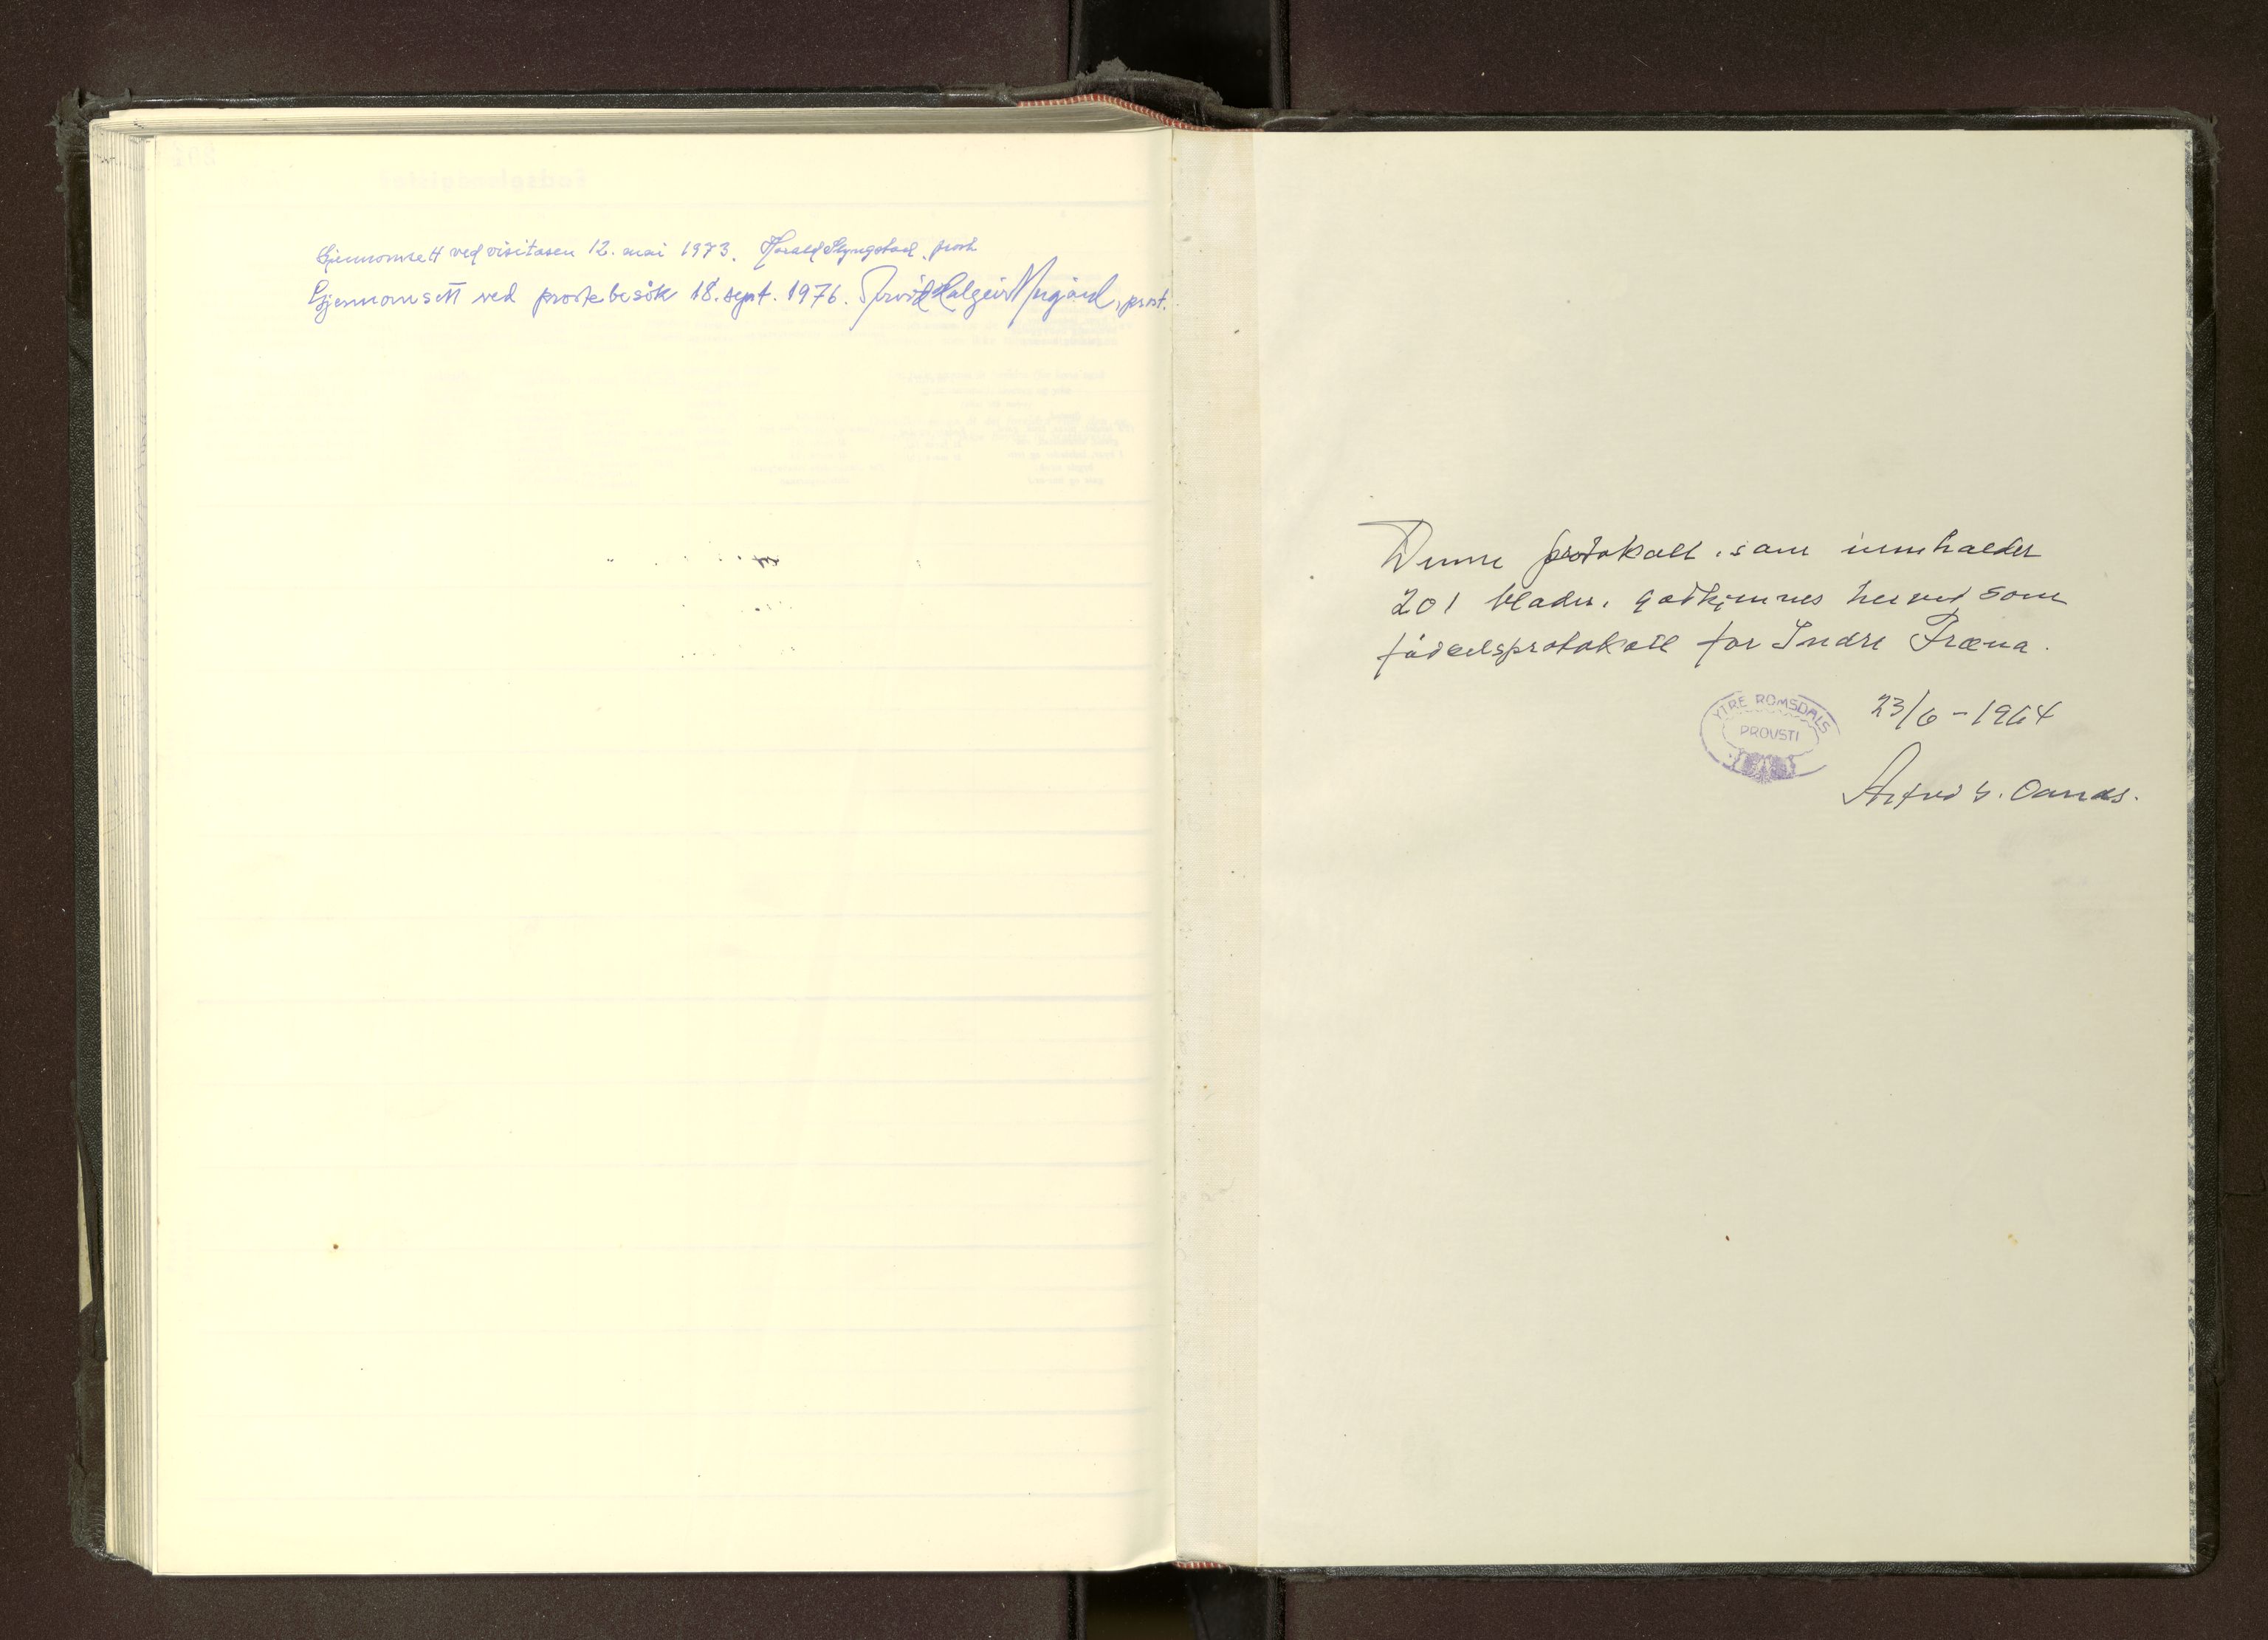 Gjennomsett ved visitasen 12. mai 1973. Harald Slyngstad, prost
Gjennomsett ved prostebesøk 18. sept. 1976. Halgeir prost.
Denne protokoll, som inneholder
201 blader, godkjennes herved som
fødselsprotokoll for Indre Fræna.
23/6 - 1964
YTRE ROMSDALS
PROVSTI